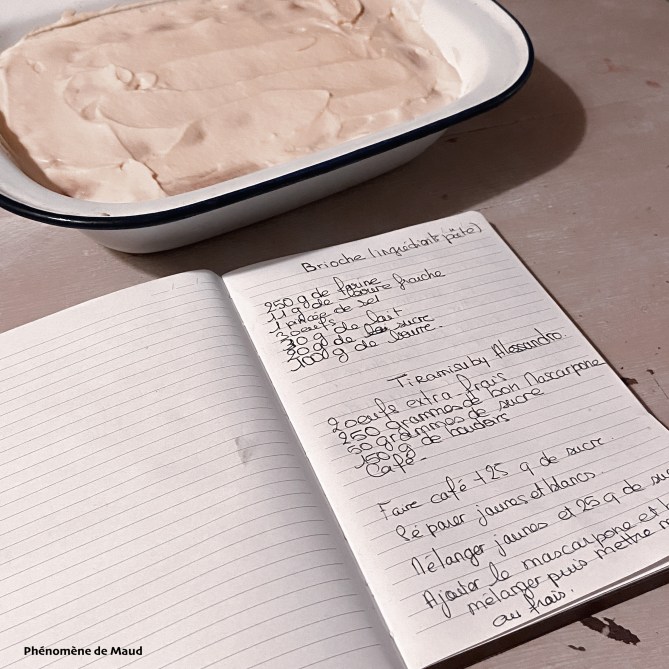 Brioche (ingrédients pâte)
250 g de farine
11 g de levure fraîche
1 pincée de sel
3 oeufs
30 g de lait
30 g de sucre
100 g de beurre.
Tiramisu by Alessandro.
2 oeufs extra-frais
250 grammes de bon Mascarpone
50 grammes de sucre
150 g de boudoirs
Café
Faire café + 25 g de sucre.
Séparer jaunes et blancs.
Mélanger jaunes et 25 g de su
Ajouter le mascarpone et
mélanger puis mettre
au frais.
Phénomène de Maud